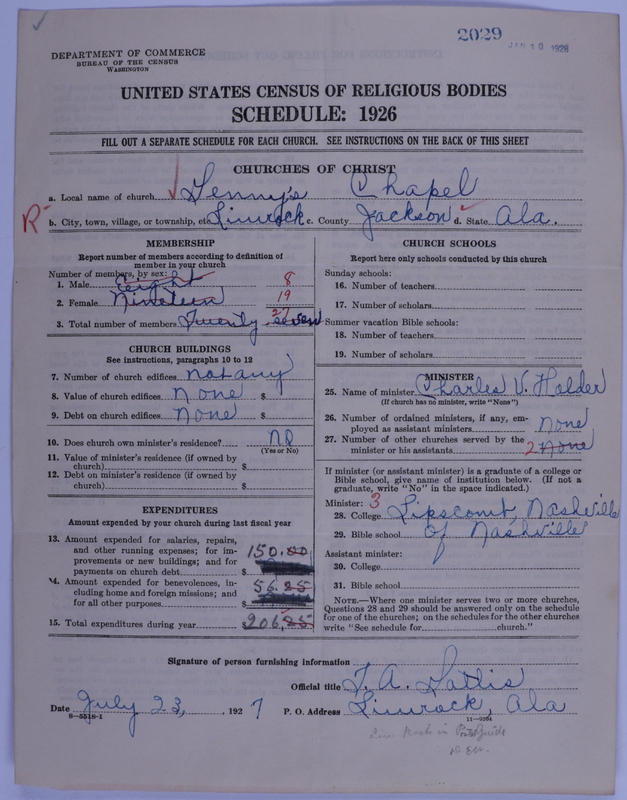 2029
JAN 10 1928
DEPARTMENT OF COMMERCE
BUREAU OF THE CENSUS
WASHINGTON
UNITED STATES CENSUS OF RELIGIOUS BODIES
SCHEDULE: 1926
FILL OUT A SEPARATE SCHEDULE FOR EACH CHURCH. SEE INSTRUCTIONS ON THE BACK OF THIS SHEET
CHURCHES OF CHRIST
a. Local name of church Lenny's Chapel
R
b. City, town, village, or township, etc Limrock c. County Jackson d. State Ala.
MEMBERSHIP
Report number of members according to definition of
member in your church
Number of members, by sex:
1. Male Eight 8
2. Female Nineteen 19
3. Total number of members Twenty seven 27
CHURCH BUILDINGS
See instructions, paragraphs 10 to 12
7. Number of church edifices not any
8. Value of church edifices None $
9. Debt on church edifices None $
10. Does church own minister's residence? no
(Yes or No)
11. Value of minister's residence (if owned by
church) $
12. Debt on minister's residence (if owned by
church) $
EXPENDITURES
Amount expended by your church during last fiscal year
13. Amount expended for salaries, repairs,
and other running expenses; for im-
provements or new buildings; and for
payments on church debt $ 150.00
14. Amount expended for benevolences, in-
cluding home and foreign missions; and
for all other purposes $ 56.25
15. Total expenditures during year 206.25
CHURCH SCHOOLS
Report here only schools conducted by this church
Sunday schools:
16. Number of teachers
17. Number of scholars
Summer vacation Bible schools:
18. Number of teachers
19. Number of scholars
MINISTER
25. Name of minister Charles V. Holder
(If church has no minister, write "None")
26. Number of ordained ministers, if any, em-
ployed as assistant ministers None
27. Number of other churches served by the
minister or his assistants 2 None
If minister (or assistant minister) is a graduate of a college or
Bible school, give name of institution below. (If not a
graduate, write "No" in the space indicated.)
Minister: 3
28. College Lipscomb, Nashville
29. Bible school of Nashville
Assistant minister:
30. College
31. Bible school
NOTE.—Where one minister serves two or more churches,
Questions 28 and 29 should be answered only on the schedule
for one of the churches; on the schedules for the other churches
write "See schedule for church."
Signature of person furnishing information
Official title T. A.
Date July 23, 1927 P. O. Address Limrock, Ala
8—5518-1 11—9264
Lim Rock in Guide